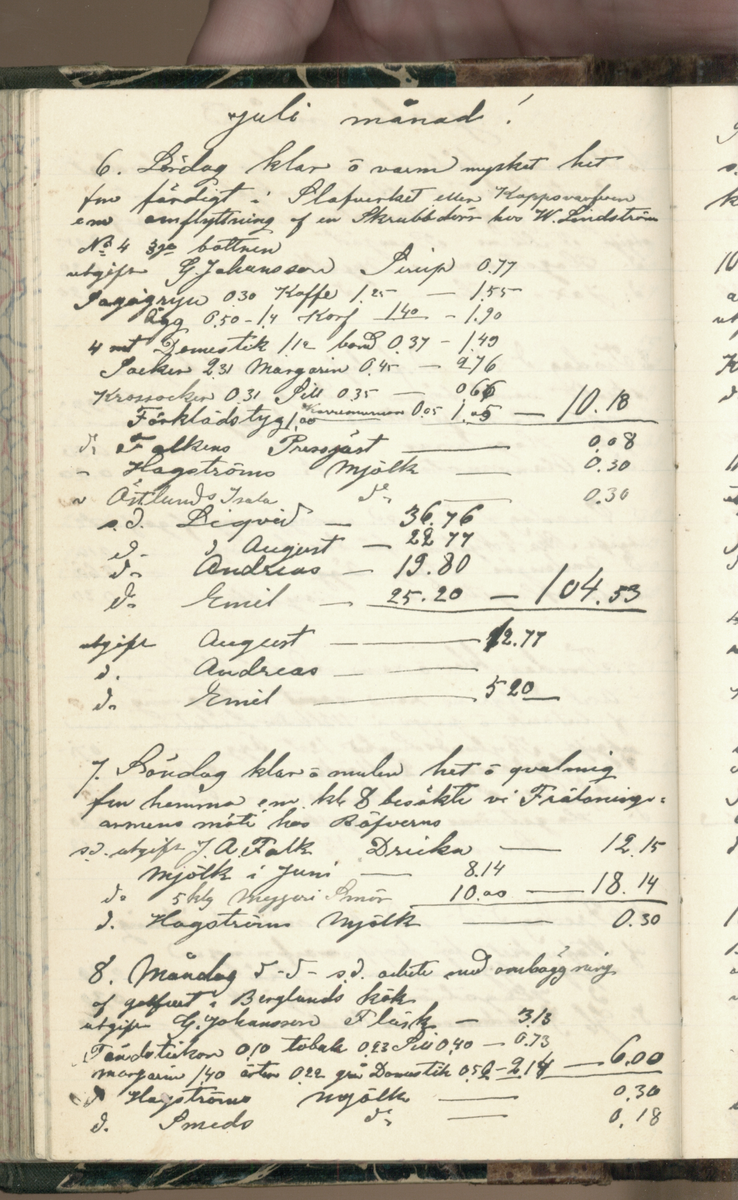 Juli månad!
6. Lördag klar ö varm mycket het
fm färdigt i Slafverket eller Kappsvarfven
em omflyttning af en Skrubbdörr hos W. Lindström
No 4 3dje bottnen
utgift G. Johansson Sirup 0.77
Sagogryn 0.30 Kaffe 1.25 — 1.55
Ägg 0.50 - 1.4 Korf 1.40 - 1.90
4 mt Domestik 1.12 band 0.37 - 1.49
Socker 2.31 Margarin 0.45 — 2.76
Krossocker 0.31 Sill 0.35 — 0.66
Förklädstyg 1.00 0.05 1.05 — 10.18
d:o Falkens Pressjäst — 0.08
" Hagströms Mjölk — 0.30
" Östlunds Isala d:o — 0.30
s.d. Liqvid — 36.76
d:o d. August — 22.77
d:o Andreas — 19.80
d:o Emil — 25.20 — 104.53
utgift August — 12.77
d. Andreas —
d:o Emil — 5.20
7. Söndag klar ö mulen het ö qvalmig
fm hemma em. kl. 8 besökte vi Frälsnings-
armens möte hos Böfverns
s.d. utgift J. A. Falk Dricka — 12.15
Mjölk i Juni — 8.14
d:o 5 klg Mejeri Smör 10.00 — 18.14
d. Hagströms Mjölk — 0.30
8. Måndag d-d- s.d. arbete med ombäggning
af golfvet i Berglunds kök
utgift G. Johansson Fläsk — 3.13
Tändstickor 0.10 tobak 0.23 Sill 0.40 — 0.73
margarin 1.40 ärter 0.22 grå Domestik 0.52 - 2.14 — 6.00
d. Hagströms mjölk — 0.30
d. Smeds d:o — 0.18